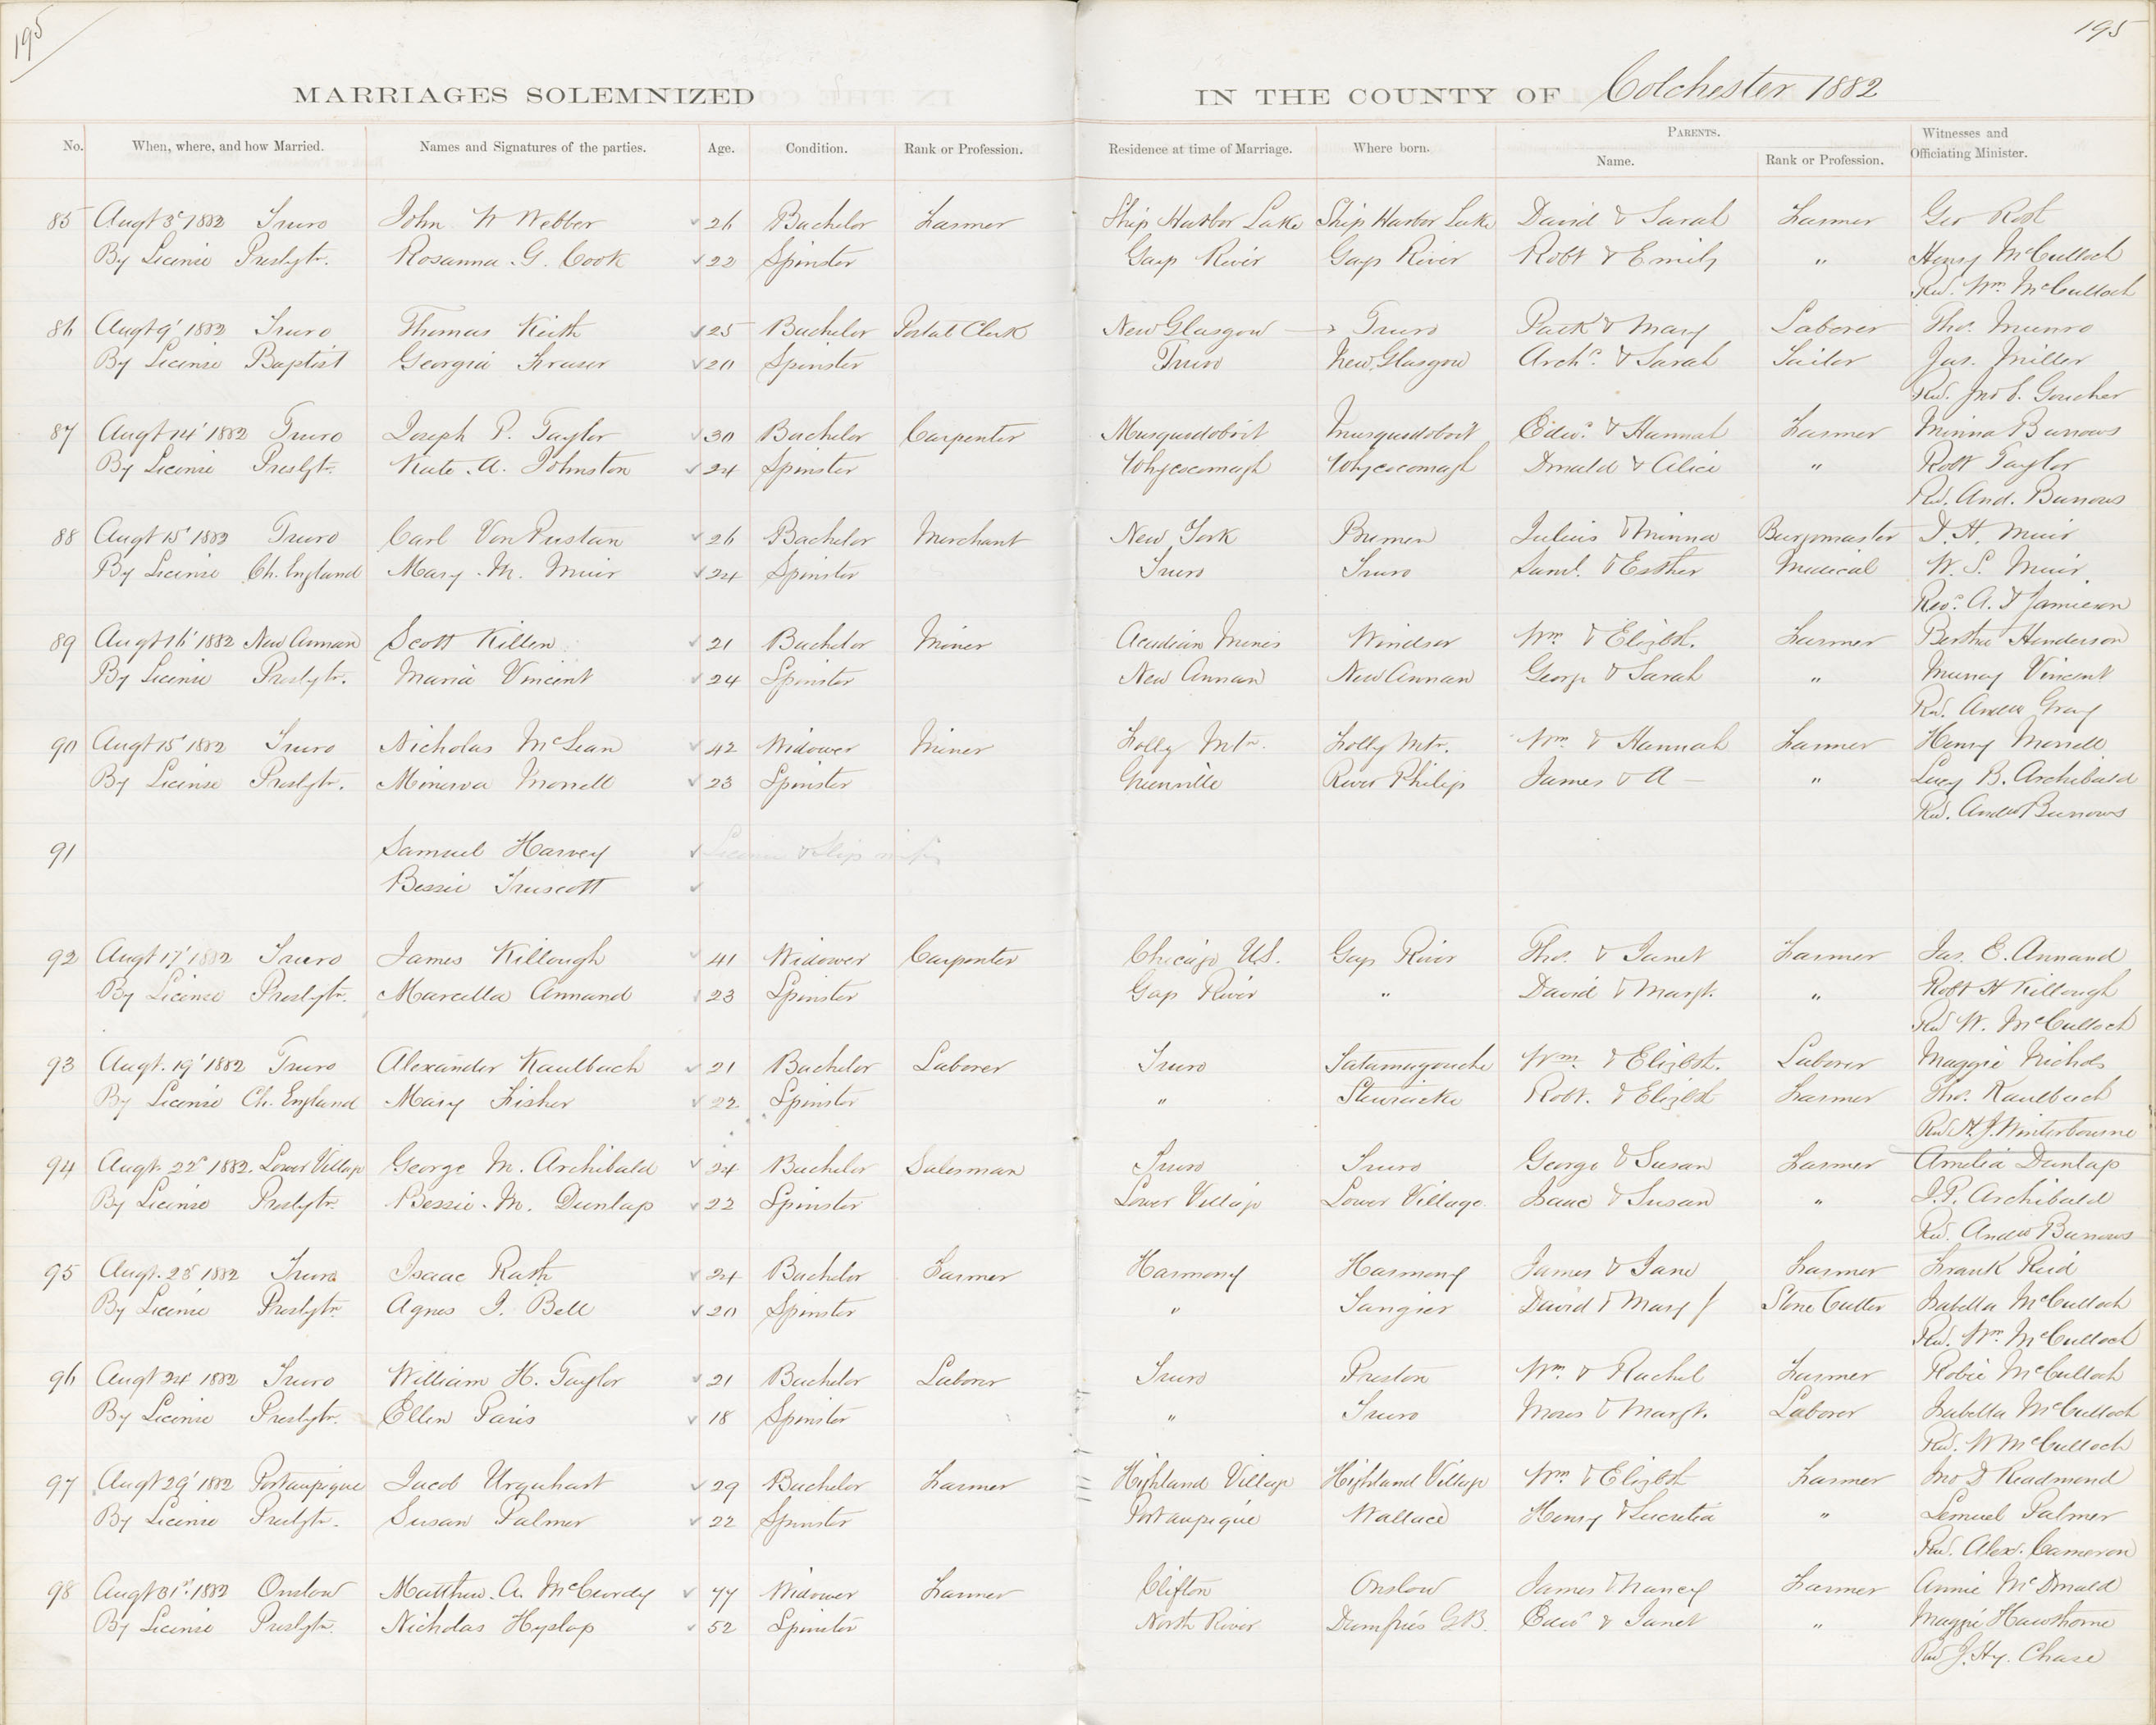 195
195
MARRIAGES SOLEMNIZED IN THE COUNTY OF Colchester 1882
No. When, where, and how Married. Names and Signatures of the parties. Age. Condition. Rank or Profession. Residence at time of Marriage. Where born. PARENTS. Name. Rank or Profession. Witnesses and Officiating Minister.
85 Augt 3d 1882 Truro John W Webber 26 Bachelor Farmer Ship Harbor Lake Ship Harbor Lake David & Sarah Farmer Geo Ross
By License Presbytn. Rosanna G. Cook 22 Spinster Gays River Gays River Robt & Emily " Henry McCulloch
Rev. Wm. McCulloch
86 Augt 9' 1882 Truro Thomas Keith 25 Bachelor Postal Clerk New Glasgow Truro Patk & Mary Laborer Thos. Munro
By License Baptist Georgia Fraser 20 Spinster Truro New Glasgow Archd. & Sarah Tailor Jas. Miller
Rev. Jno E. Goucher
87 Augt 14' 1882 Truro Joseph P. Taylor 30 Bachelor Carpenter Musquodoboit Musquodoboit Edwd. & Hannah Farmer Minna Burrows
By License Presbytn. Kate A. Johnston 24 Spinster Whycocomagh Whycocomagh Donald & Alice " Robt Taylor
Rev. And. Burrows
88 Augt 15' 1882 Truro Carl Von Pustan 26 Bachelor Merchant New York Bremen Julius & Minna Burgomaster D. H. Muir
By License Ch. England Mary M. Muir 24 Spinster Truro Truro Saml. & Esther Medical W. S. Muir
Revd. A. D Jamieson
89 Augt 16' 1882 New Annan Scott Killen 21 Bachelor Miner Acadian Mines Windsor Wm & Elizbth. Farmer Bertha Henderson
By License Presbytn. Maria Vincent 24 Spinster New Annan New Annan George & Sarah " Murray Vincent
Rev. Andw Gray
90 Augt 15' 1882 Truro Nicholas McLean 42 Widower Miner Folly Mtn. Folly Mtn. Wm. & Hannah Farmer Henry Morrell
By License Presbytn. Minerva Morrell 23 Spinster Greenville River Philip James & A — " Lucy B. Archibald
Rev. Andw Burrows
91 Samuel Harvey
Bessie Truscott
92 Augt 17' 1882 Truro James Killough 41 Widower Carpenter Chicago U.S. Gays River Thos. & Janet Farmer Jas. E. Annand
By License Presbytn. Marcella Annand 23 Spinster Gays River " David & Margt. " Robt H Killough
Rev W. McCulloch
93 Augt. 19' 1882 Truro Alexander Kaulbach 21 Bachelor Laborer Truro Tatamagouche Wm & Elizbth. Laborer Maggie Nichols
By License Ch. England Mary Fisher 22 Spinster " Stewiacke Robt. & Elizbth Farmer Thos. Kaulbach
Rev H. J. Winterbourne
94 Augt. 22d 1882. Lower Village George M. Archibald 24 Bachelor Salesman Truro Truro George & Susan Farmer Amelia Dunlap
By License Presbytn. Bessie M. Dunlap 22 Spinster Lower Village Lower Village Isaac & Susan " I. P. Archibald
Rev. Andw Burrows
95 Augt. 23d 1882 Truro Isaac Rath 24 Bachelor Farmer Harmony Harmony James & Jane Farmer Frank Reid
By License Presbytn Agnes J. Bell 20 Spinster " Tangier David & Mary J Stone Cutter Isabella McCulloch
Rev. Wm. McCulloch
96 Augt 24 1882 Truro William H. Taylor 21 Bachelor Laborer Truro Preston Wm & Rachel Farmer Robie McCulloch
By License Presbytn. Ellen Paris 18 Spinster " Truro Moses & Margt. Laborer Isabella McCulloch
Rev. W McCulloch
97 Augt 29' 1882 Portaupique Jacob Urquhart 29 Bachelor Farmer Highland Village Highland Village Wm & Elizbth Farmer Jno D Readmond
By License Presbytn. Susan Palmer 22 Spinster Portaupique Wallace Henry & Lucretia " Lemuel Palmer
Rev. Alex. Cameron
98 Augt 31st. 1882 Onslow Matthew A. McCurdy 77 Widower Farmer Clifton Onslow James & Nancy Farmer Annie McDonald
By License Presbytn. Nicholas Hyslop 52 Spinster North River Dumfries G.B. Edwd & Janet " Maggie Hawthorne
Rev J. Hy. Chase